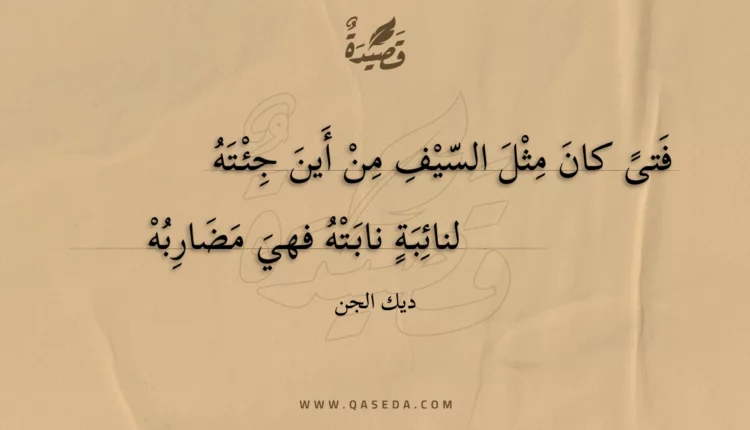 قَصِيدَةٌ
فَتىً كانَ مِثْلَ السّيْفِ مِنْ أَينَ جِئْتَهُ
لنائِبَةٍ نابَتْهُ فهيَ مَضَارِبُهْ
ديك الجن
WWW.QASEDA.COM